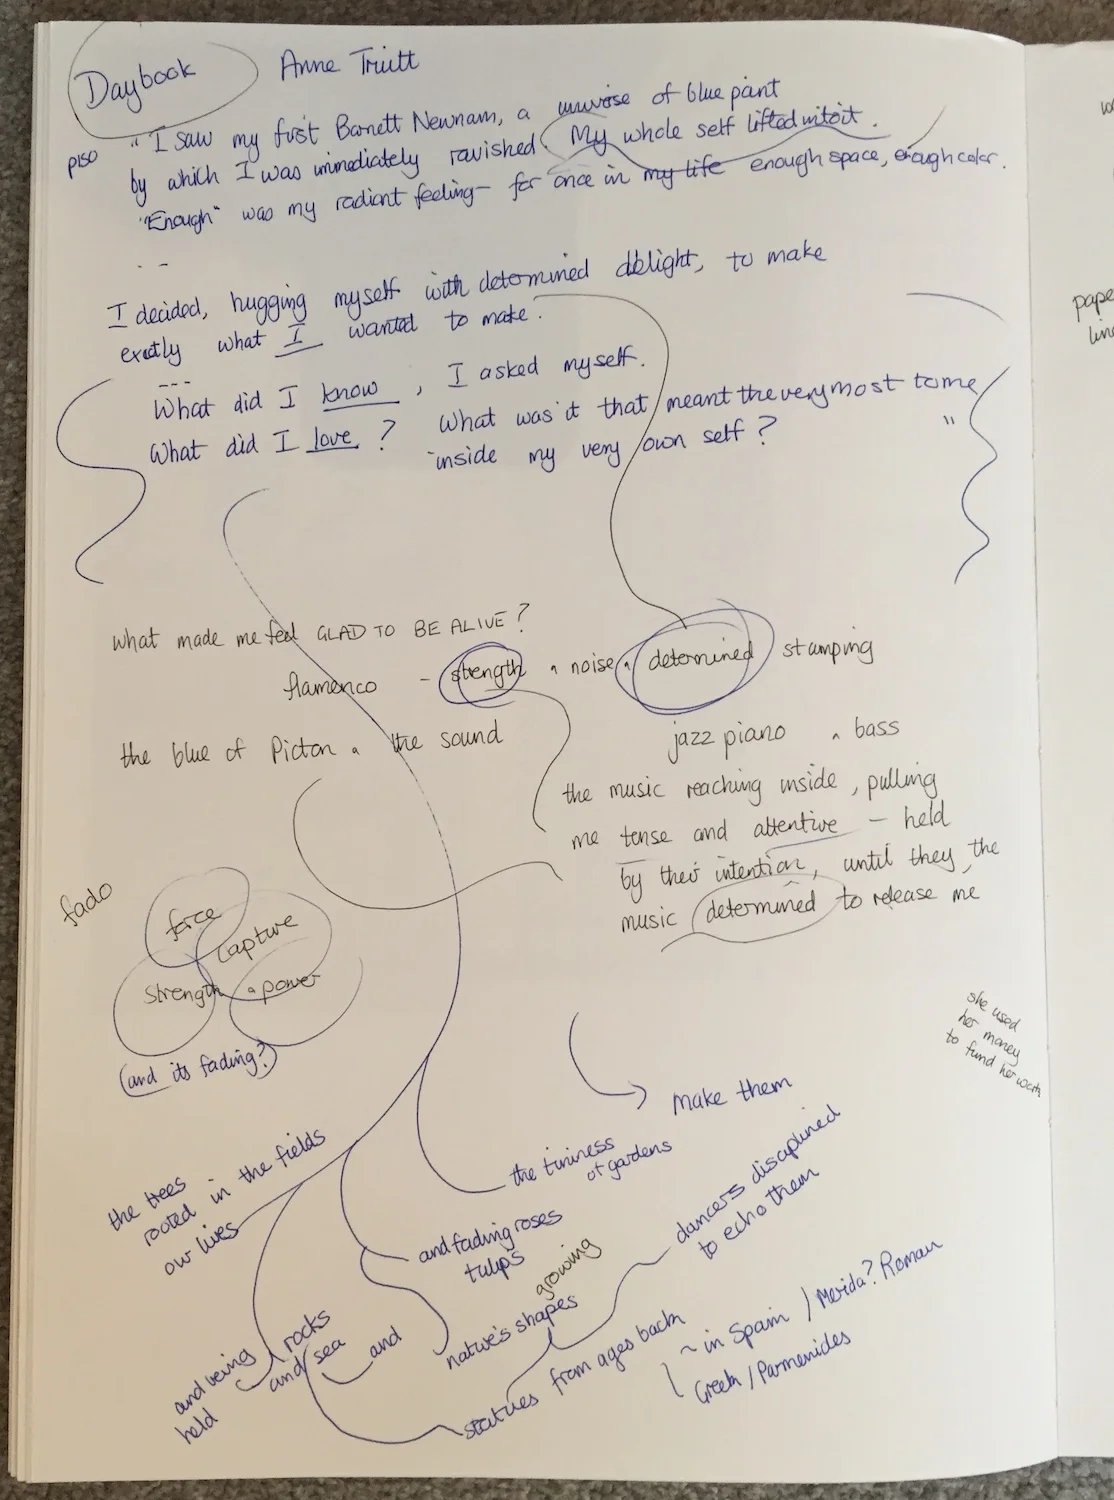 Daybook Anne Truitt
p150
"I saw my first Barnett Newnam, a universe of blue paint
by which I was immediately ravished. My whole self lifted into it.
"Enough" was my radiant feeling – for once in my life enough space, enough color.
...
I decided, hugging myself with determined delight, to make
exactly what I wanted to make.
---
What did I know, I asked myself.
What did I love? What was it that meant the very most to me
inside my very own self? "
what made me feel GLAD TO BE ALIVE?
flamenco – strength noise determined stamping
the blue of Picton the sound
jazz piano bass
the music reaching inside, pulling
me tense and attentive – held
by their intention, until they, the
music determined to release me
fado
force
capture
strength power
(and its fading?)
she used
her money
to fund her work
make them
the trees
rooted in the fields
our lives
the tininess
of gardens
and fading roses
tulips
growing
nature's shapes
dancers disciplined
to echo them
and being
held
rocks
and sea
and
statues from ages back
~ in Spain / Merida? Roman
Greek / Parmenides
pape
line